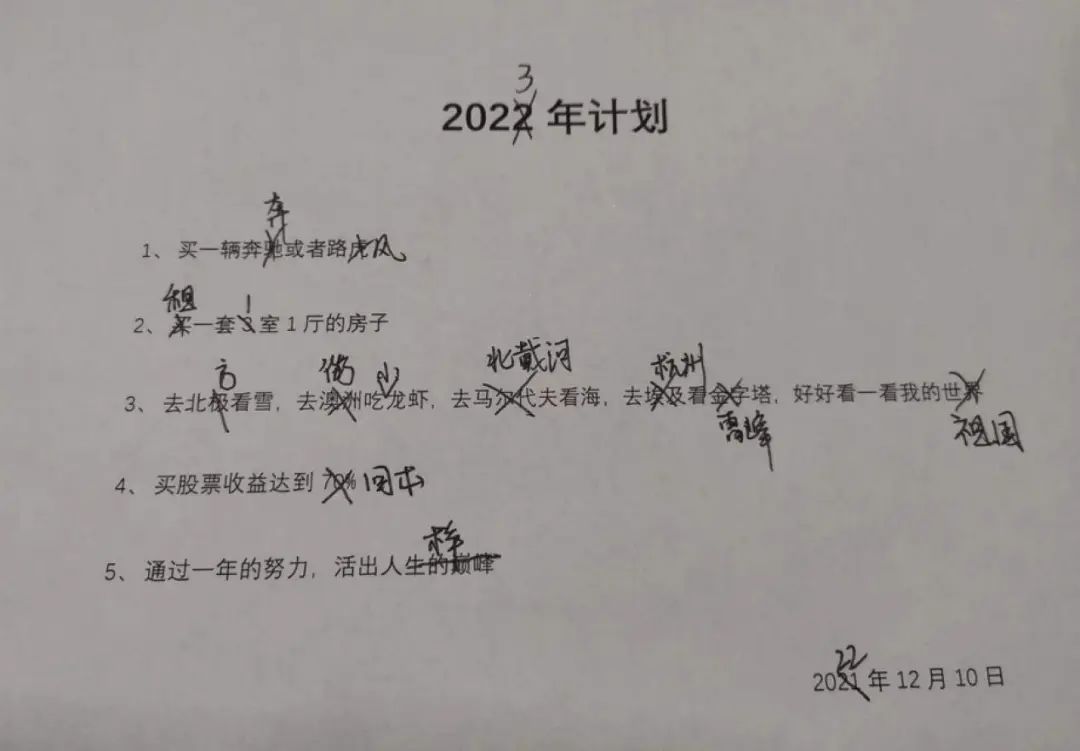 3
2022 年计划
奔
1、买一辆奔驰或者路虎风
租 1
2、买一套 3 室 1 厅的房子
方 潍坊 小 北戴河 杭州
3、去北极看雪，去澳洲吃龙虾，去马尔代夫看海，去埃及看金字塔，好好看一看我的世界
雷峰 祖国
4、买股票收益达到 70% 回本
样
5、通过一年的努力，活出人生的巅峰
22
2021 年 12 月 10 日